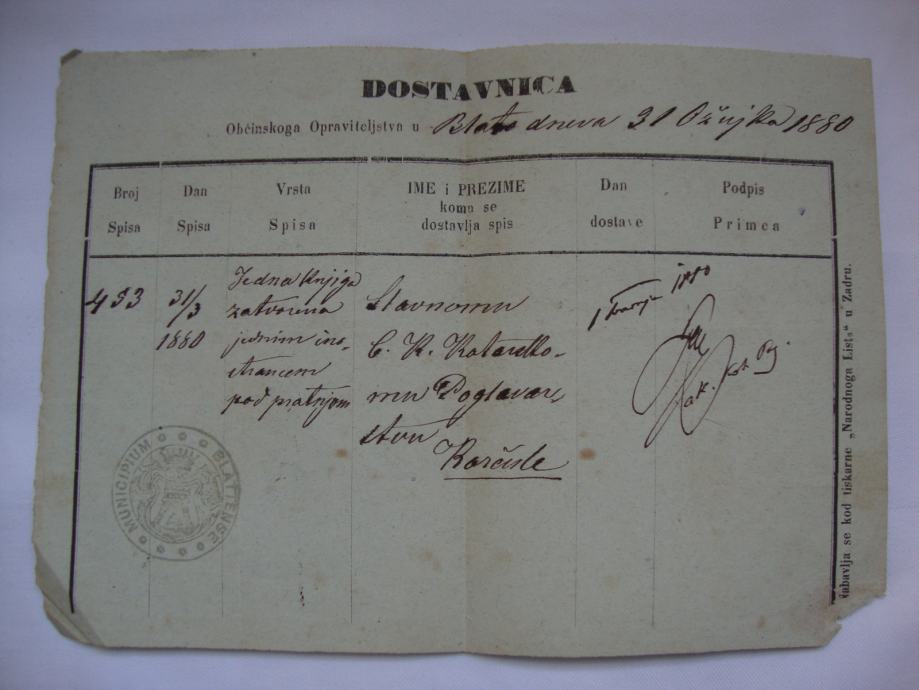 DOSTAVNICA
Obćinskoga Opraviteljstva u Blato dneva 31 Ožujka 1880
Broj Spisa
Dan Spisa
Vrsta Spisa
IME i PREZIME
koma se
dostavlja spis
Dan dostave
Podpis Primca
453
31/3
1880
Jedna knjiga
zatvorena
jednim ino-
strancem
pod pratnjom
Slavnomu
C. K. Kotarsko-
mu Poglavar-
stvu
Korčule
1 1880
MUNICIPIUM BLATTENSE
Nabavlja se kod tiskarne „Narodnoga Lista" u Zadru.